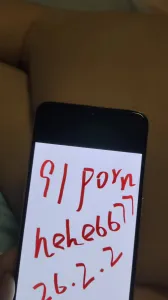 91porn
hehe6677
26.2.2